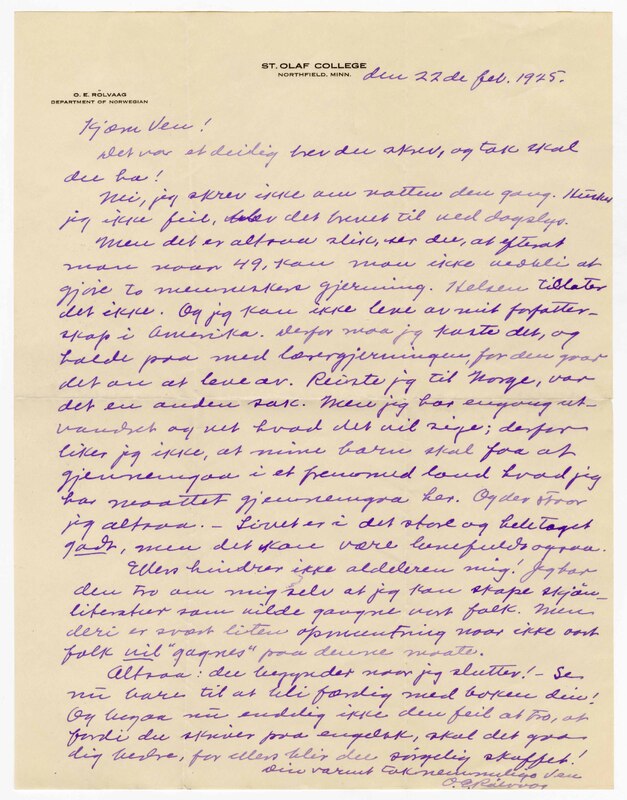 ST. OLAF COLLEGE
NORTHFIELD, MINN.
O. E. RÖLVAAG
DEPARTMENT OF NORWEGIAN
den 22de feb. 1925.
Kjære Ven!
Det var et deilig brev du skrev, og tak skal
du ha!
Nei, jeg skrev ikke om natten den gang. Husker
jeg ikke feil, blev det brevet til ved dagslys.
Men det er altsaa slik, ser du, at efterat
man naar 49, kan man ikke vedbli at
gjøre to menneskers gjerning. Helsen tillater
det ikke. Og jeg kan ikke leve av mit forfatter-
skap i Amerika. Derfor maa jeg kaste det, og
holde paa med lærergjerningen, for den gaar
det an at leve av. Reiste jeg til Norge, var
det en anden sak. Men jeg har engang ut-
vandret og vet hvad det vil sige; derfor
liker jeg ikke, at mine barn skal faa at
gjennemgaa i et fremmed land hvad jeg
har maattet gjennemgaa her. Og der staar
jeg altsaa. – Livet er i det store og hele taget
godt, men det kan være
ogsaa.
Ellers hindrer ikke alderen mig! Jeg har
den tro om mig selv at jeg kan skape skjøn-
literatur som vilde gavne vort folk. Men
deri er svært liten opmuntring naar ikke vort
folk vil "gagnes" paa denne maate.
Altsaa: du begynder naar jeg slutter! – Se
nu bare til at bli færdig med boken din!
Og begaa nu endelig ikke den feil at tro, at
fordi du skriver paa engelsk, skal det gaa
dig bedre, for ellers blir du sørgelig skuffet!
Din varmt taknemmelige Ven
O. E. Rölvaag